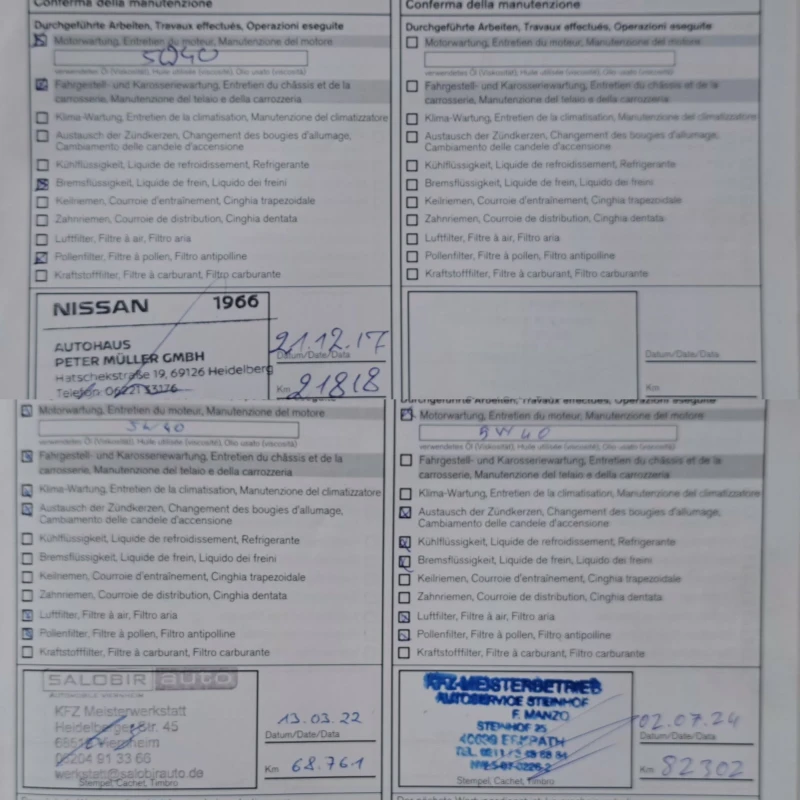 Conferma della manutenzione
Durchgeführte Arbeiten, Travaux effectués, Operazioni eseguite
Motorwartung, Entretien du moteur, Manutenzione del motore
5W40
verwendetes Öl (Viskosität), Huile utilisée (viscosité), Olio usato (viscosità)
Fahrgestell- und Karosseriewartung, Entretien du châssis et de la
carrosserie, Manutenzione del telaio e della carrozzeria
Klima-Wartung, Entretien de la climatisation, Manutenzione del climatizzatore
Austausch der Zündkerzen, Changement des bougies d'allumage,
Cambiamento delle candele d'accensione
Kühlflüssigkeit, Liquide de refroidissement, Refrigerante
Bremsflüssigkeit, Liquide de frein, Liquido dei freini
Keilriemen, Courroie d'entraînement, Cinghia trapezoidale
Zahnriemen, Courroie de distribution, Cinghia dentata
Luftfilter, Filtre à air, Filtro aria
Pollenfilter, Filtre à pollen, Filtro antipolline
Kraftstofffilter, Filtre à carburant, Filtro carburante
NISSAN 1966
AUTOHAUS
PETER MÜLLER GMBH
Hatschekstraße 19, 69126 Heidelberg
Telefon 06221 33176
21.12.17
Datum/Date/Data
Km 21818
Conferma della manutenzione
Durchgeführte Arbeiten, Travaux effectués, Operazioni eseguite
Motorwartung, Entretien du moteur, Manutenzione del motore
verwendetes Öl (Viskosität), Huile utilisée (viscosité), Olio usato (viscosità)
Fahrgestell- und Karosseriewartung, Entretien du châssis et de la
carrosserie, Manutenzione del telaio e della carrozzeria
Klima-Wartung, Entretien de la climatisation, Manutenzione del climatizzatore
Austausch der Zündkerzen, Changement des bougies d'allumage,
Cambiamento delle candele d'accensione
Kühlflüssigkeit, Liquide de refroidissement, Refrigerante
Bremsflüssigkeit, Liquide de frein, Liquido dei freini
Keilriemen, Courroie d'entraînement, Cinghia trapezoidale
Zahnriemen, Courroie de distribution, Cinghia dentata
Luftfilter, Filtre à air, Filtro aria
Pollenfilter, Filtre à pollen, Filtro antipolline
Kraftstofffilter, Filtre à carburant, Filtro carburante
Datum/Date/Data
Km
Motorwartung, Entretien du moteur, Manutenzione del motore
5W40
verwendetes Öl (Viskosität), Huile utilisée (viscosité), Olio usato (viscosità)
Fahrgestell- und Karosseriewartung, Entretien du châssis et de la
carrosserie, Manutenzione del telaio e della carrozzeria
Klima-Wartung, Entretien de la climatisation, Manutenzione del climatizzatore
Austausch der Zündkerzen, Changement des bougies d'allumage,
Cambiamento delle candele d'accensione
Kühlflüssigkeit, Liquide de refroidissement, Refrigerante
Bremsflüssigkeit, Liquide de frein, Liquido dei freini
Keilriemen, Courroie d'entraînement, Cinghia trapezoidale
Zahnriemen, Courroie de distribution, Cinghia dentata
Luftfilter, Filtre à air, Filtro aria
Pollenfilter, Filtre à pollen, Filtro antipolline
Kraftstofffilter, Filtre à carburant, Filtro carburante
SALOBIR auto
KFZ Meisterwerkstatt
Heidelberger Str. 45
Viernheim
06204 91 33 66
werkstatt@salobirauto.de
Stempel, Cachet, Timbro
13.03.22
Datum/Date/Data
Km 68.761
Durchgeführte Arbeiten, Travaux effectués, Operazioni eseguite
Motorwartung, Entretien du moteur, Manutenzione del motore
5W40
verwendetes Öl (Viskosität), Huile utilisée (viscosité), Olio usato (viscosità)
Fahrgestell- und Karosseriewartung, Entretien du châssis et de la
carrosserie, Manutenzione del telaio e della carrozzeria
Klima-Wartung, Entretien de la climatisation, Manutenzione del climatizzatore
Austausch der Zündkerzen, Changement des bougies d'allumage,
Cambiamento delle candele d'accensione
Kühlflüssigkeit, Liquide de refroidissement, Refrigerante
Bremsflüssigkeit, Liquide de frein, Liquido dei freini
Keilriemen, Courroie d'entraînement, Cinghia trapezoidale
Zahnriemen, Courroie de distribution, Cinghia dentata
Luftfilter, Filtre à air, Filtro aria
Pollenfilter, Filtre à pollen, Filtro antipolline
Kraftstofffilter, Filtre à carburant, Filtro carburante
KFZ-MEISTERBETRIEB
AUTOSERVICE STEINHOF
F. MANZO
STEINHOF 25
40699 ERKRATH
Stempel, Cachet, Timbro
02.07.24
Datum/Date/Data
Km 82302